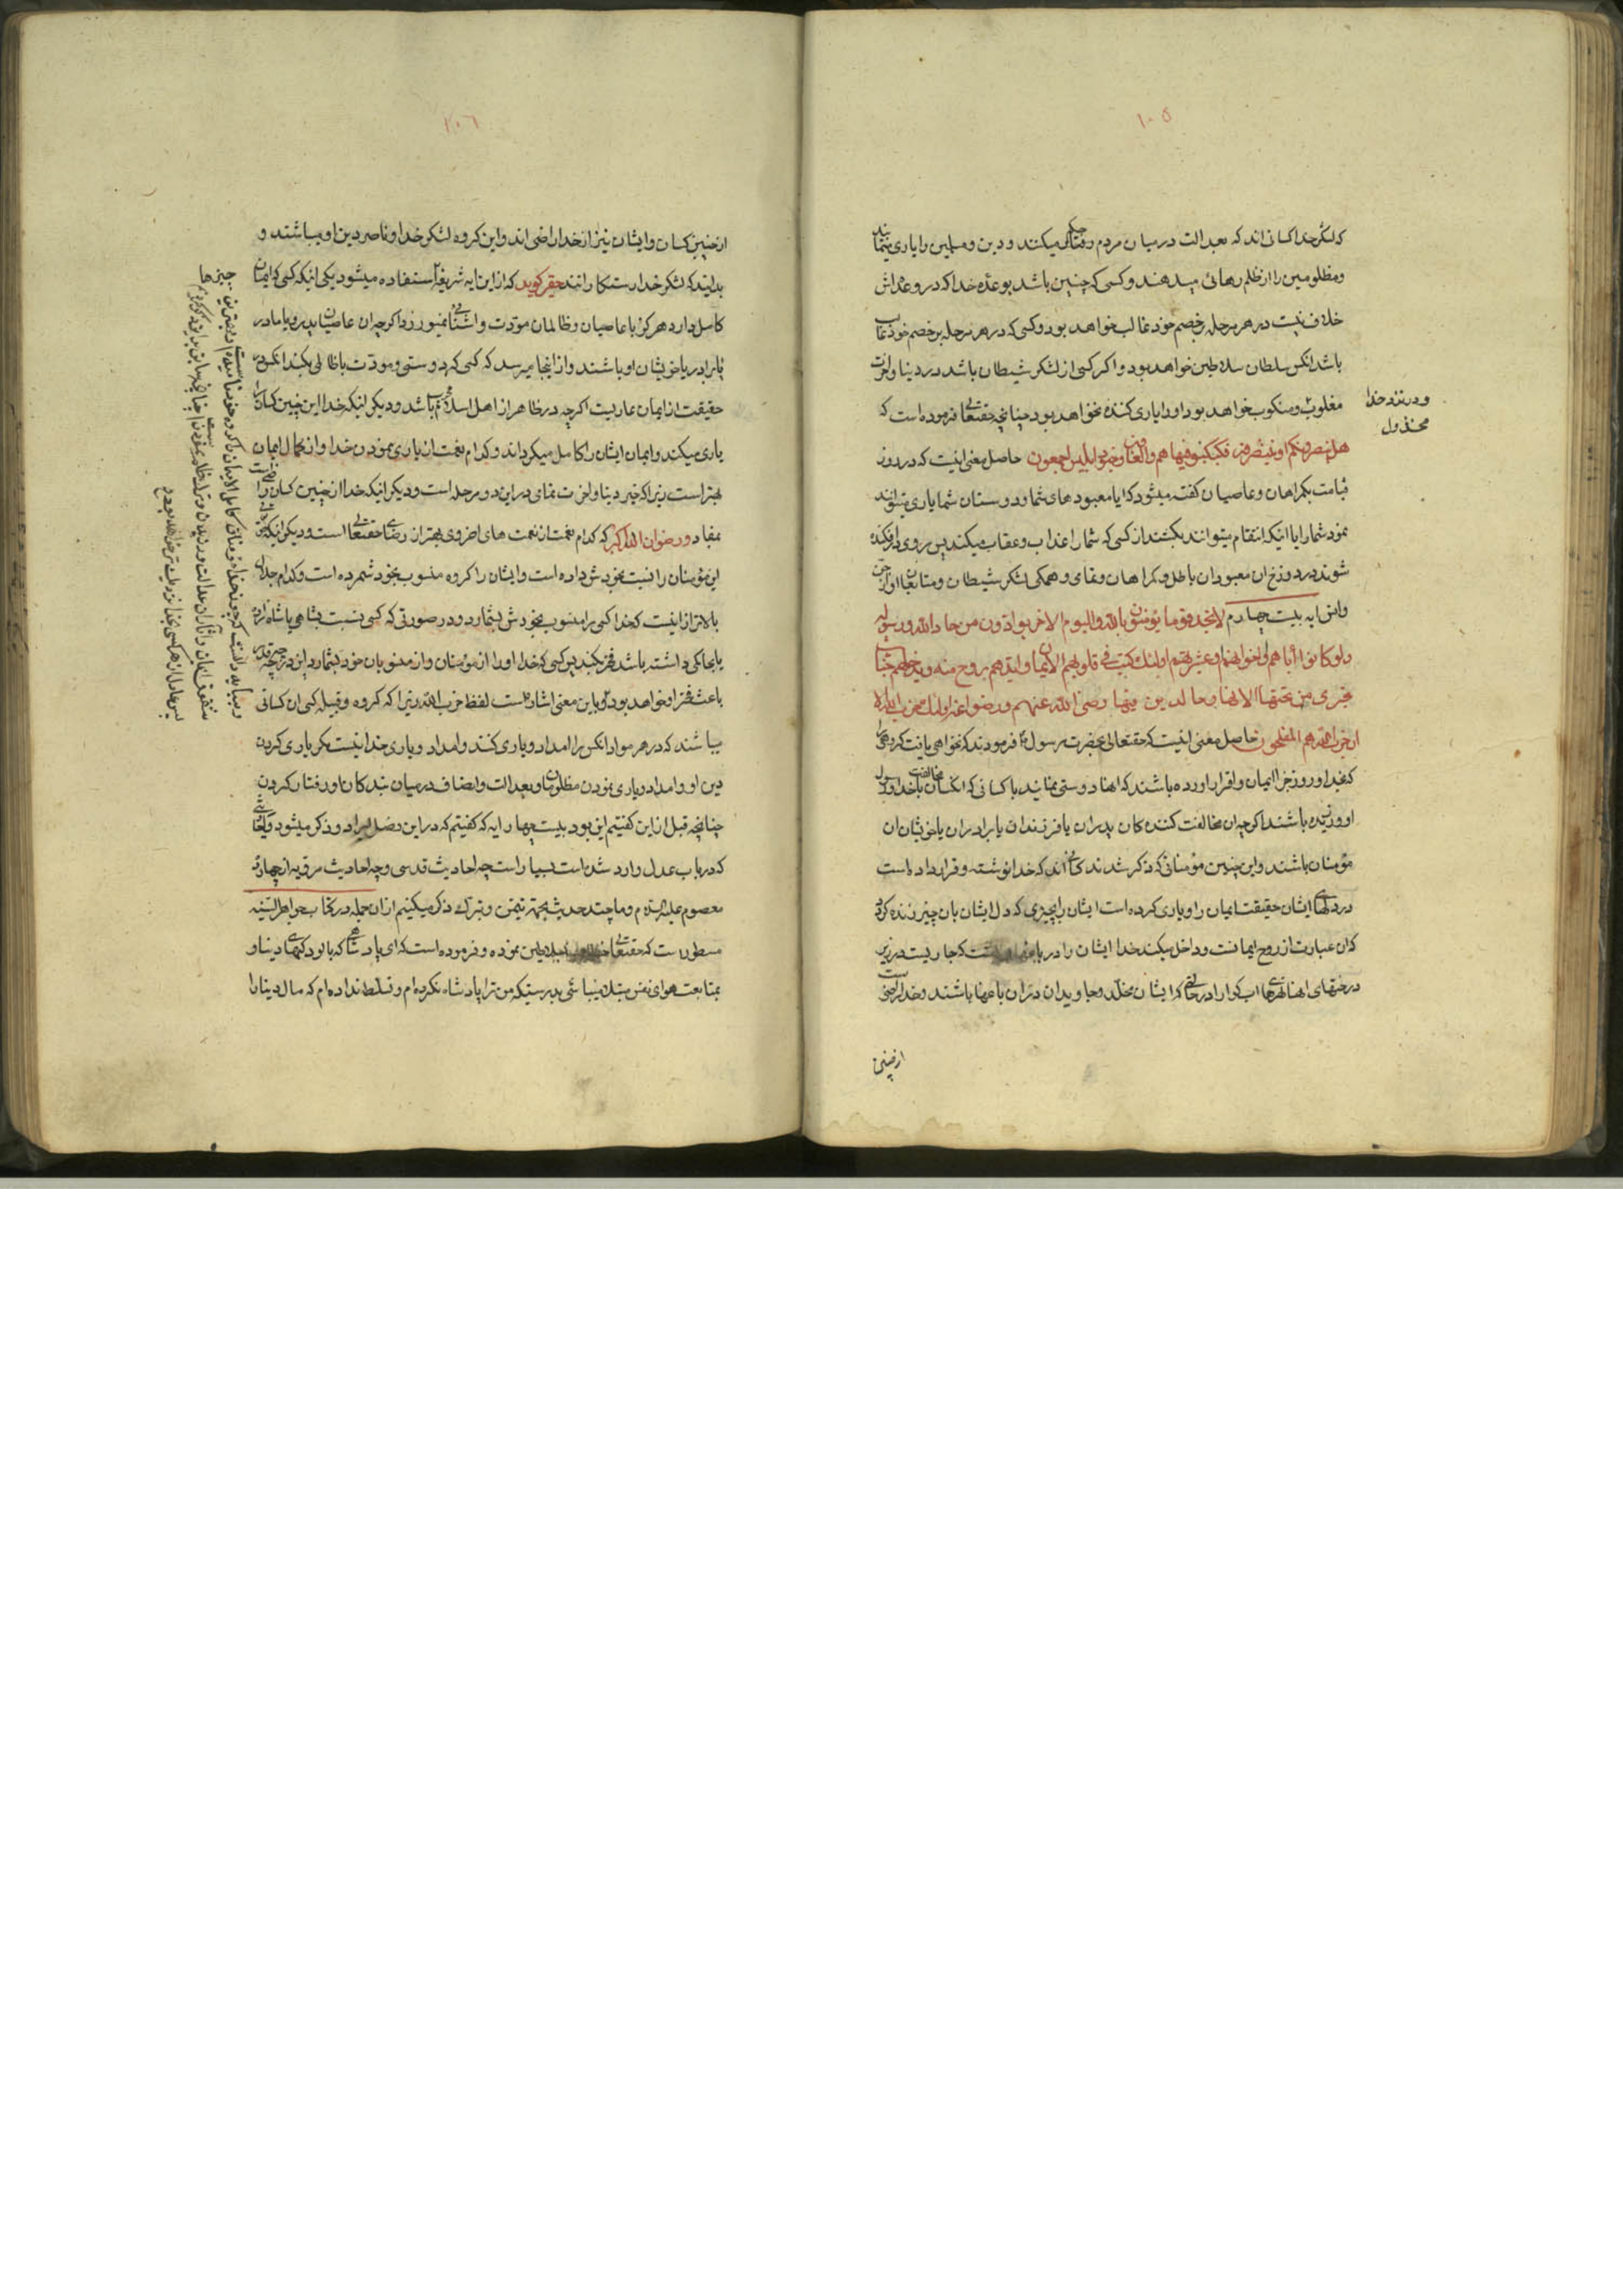 ١٠٥
که لشکر خدا کسانی‌اند که بعدالت در میان مردم حکم میکنند و دین و مسلمین را یاری مینمایند
و مظلومین را از ظلم رهائی میدهند و کسی که چنین باشد بوعده خدا که در وعده‌اش
خلاف نیست در هر مرحله بر خصم خود غالب خواهد بود و کسی که در هر مرحله بر خصم خود غالب
باشد آنکس سلطان سلاطین خواهد بود و اگر کسی از لشکر شیطان باشد در دنیا و اخرت
مغلوب و منکوب خواهد بود و او را یاری کننده نخواهد بود چنانچه حقتعالی فرموده است که
و در نزد خدا
مخذول
هل ینصرونکم او ینتصرون فکبکبوا فیها هم والغاون وجنود ابلیس اجمعون حاصل معنی اینست که در روز
قیامت بگمراهان و عاصیان کفته میشود که ایا معبودهای شما و دوستان شما یاری میتوانند
نمود شما را یا اینکه انتقام میتوانند بکشند از کسی که شما را عذاب و عقاب میکند پس بروی در افکنده
شوند در دوزخ ان معبودان باطل و گمراهان و همگی لشکر شیطان و متابعان او از جن
وانس ایه بیست چهارم لا تجد قوما یؤمنون بالله والیوم الاخر یوادون من حاد الله ورسوله
ولو کانوا آباءهم او اخوانهم او عشیرتهم اولئك کتب فی قلوبهم الایمان وایدهم بروح منه ویدخلهم جنات
تجری من تحتها الانهار خالدین فیها رضی الله عنهم ورضوا عنه اولئك حزب الله الا
ان حزب الله هم المفلحون حاصل معنی اینست که حقتعالی بحضرت رسول فرمودند که نخواهی یافت کروهی را
که بخدا و روز جزا ایمان و اقرار اورده باشند که انها دوستی نمایند با کسانی که انکسان مخالفت با خدا و رسول
او ورزیده باشند اکرچه ان مخالفت کننده‌کان پدران یا فرزندان یا برادران یا خویشان ان
مؤمنان باشند و این چنین مؤمنانی که ذکر شدند کسانی‌اند که خدا نوشته و قرار داده است
در دلهای ایشان حقیقت ایمان را و یاری کرده است ایشان را بچیزی که دل ایشان بان چیز زنده کردد
که ان عبارت از روح ایمانست و داخل میکند خدا ایشان را در باغهای بهشت که جاریست در زیر
درختهای انها نهرهای اب کوارا در حالتی که ایشان مخلد و جاویدان در ان باغها باشند و خدا راضیست
ازچنین
٢٠٦
ازچنین کسان و ایشان نیز از خدا راضی‌اند و این کروه لشکر خدا و ناصر دین او میباشند و
بدانید که لشکر خدا رستکارانند حقیر کوید که از این ایه شریفه استفاده میشود یکی اینکه کسی که ایمان
کامل دارد هرکز با عاصیان و ظالمان مودت و اشنائی نمیورزد اکرچه ان عاصیان پدر و یا مادر
یا برادر یا خویشان او باشند و از اینجا میرسد که کسی که دوستی و مودت با ظالمی بکند انکس در
حقیقت از ایمان عاریست اکرچه در ظاهر از اهل اسلام محسوب باشد و دیکر اینکه خدا این چنین کسان را
یاری میکند و ایمان ایشان را کامل میکرداند و کدام نعمت از یاری نمودن خدا و از کمال ایمان
بهتر است زیرا که خیر دنیا و اخرت بتمامی در این دو مرحله است و دیکر اینکه خدا از چنین کسان راضی
بمفاد ورضوان الله اکبر که کدام نعمت از نعمت های اخروی بهتر از رضای حقتعالی است و دیکر اینکه
این مؤمنان را نسبت بخودش داده است و ایشان را کروه منسوب بخود شمرده است و کدام جلال
بالاتر از اینست که خدا کسی را منسوب بخودش بشمارد و در صورتی که کسی نسبت بشاهی یا شاهزاده
یا بحاکمی داشته باشد فخر میکند پس کسی که خدا او را از مؤمنان و از منسوبان خود بشمارد این درجه چه قدر
باعث فخر او خواهد بود و باین معنی اشاره است لفظ حزب الله زیرا که کروه و قبیله کسی ان کسانی
میباشند که در هر موارد انکس را امداد و یاری کنند و امداد و یاری خدا نیست مکر یاری کردن
دین او و امداد و یاری نمودن مظلومان و بعدالت و انصاف در میان بندکان او رفتار کردن
چنانچه قبل از این کفتیم این بود بیست چهار ایه که کفتیم که در این فصل ایراد و ذکر میشود و احادیثی
که در باب عدل وارد شده است بسیار است چه احادیث قدسی و چه احادیث مرویه از چهارده
معصوم علیهم السلام و ما چند حدیث بجهة تیمن و تبرك ذکر میکنیم از ان جمله در کتاب جواهر السنیه
مسطور است که حقتعالی خطاب بسلاطین نموده و فرموده است که ای پادشاهی که بالودکیهای دنیا و
بمتابعت هوای نفس مبتلا میباشی بدرستیکه من ترا پادشاه نکرده‌ام و تسلط نداده‌ام که مال دنیا را